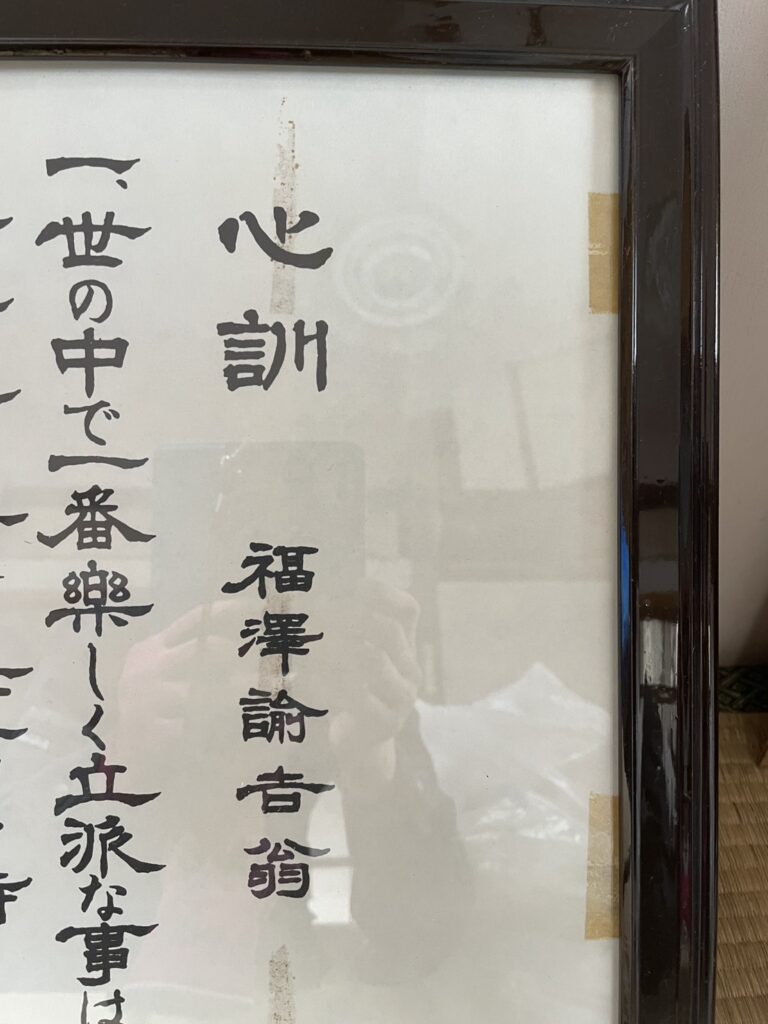 心訓　福澤諭吉翁
一、世の中で一番楽しく立派な事は